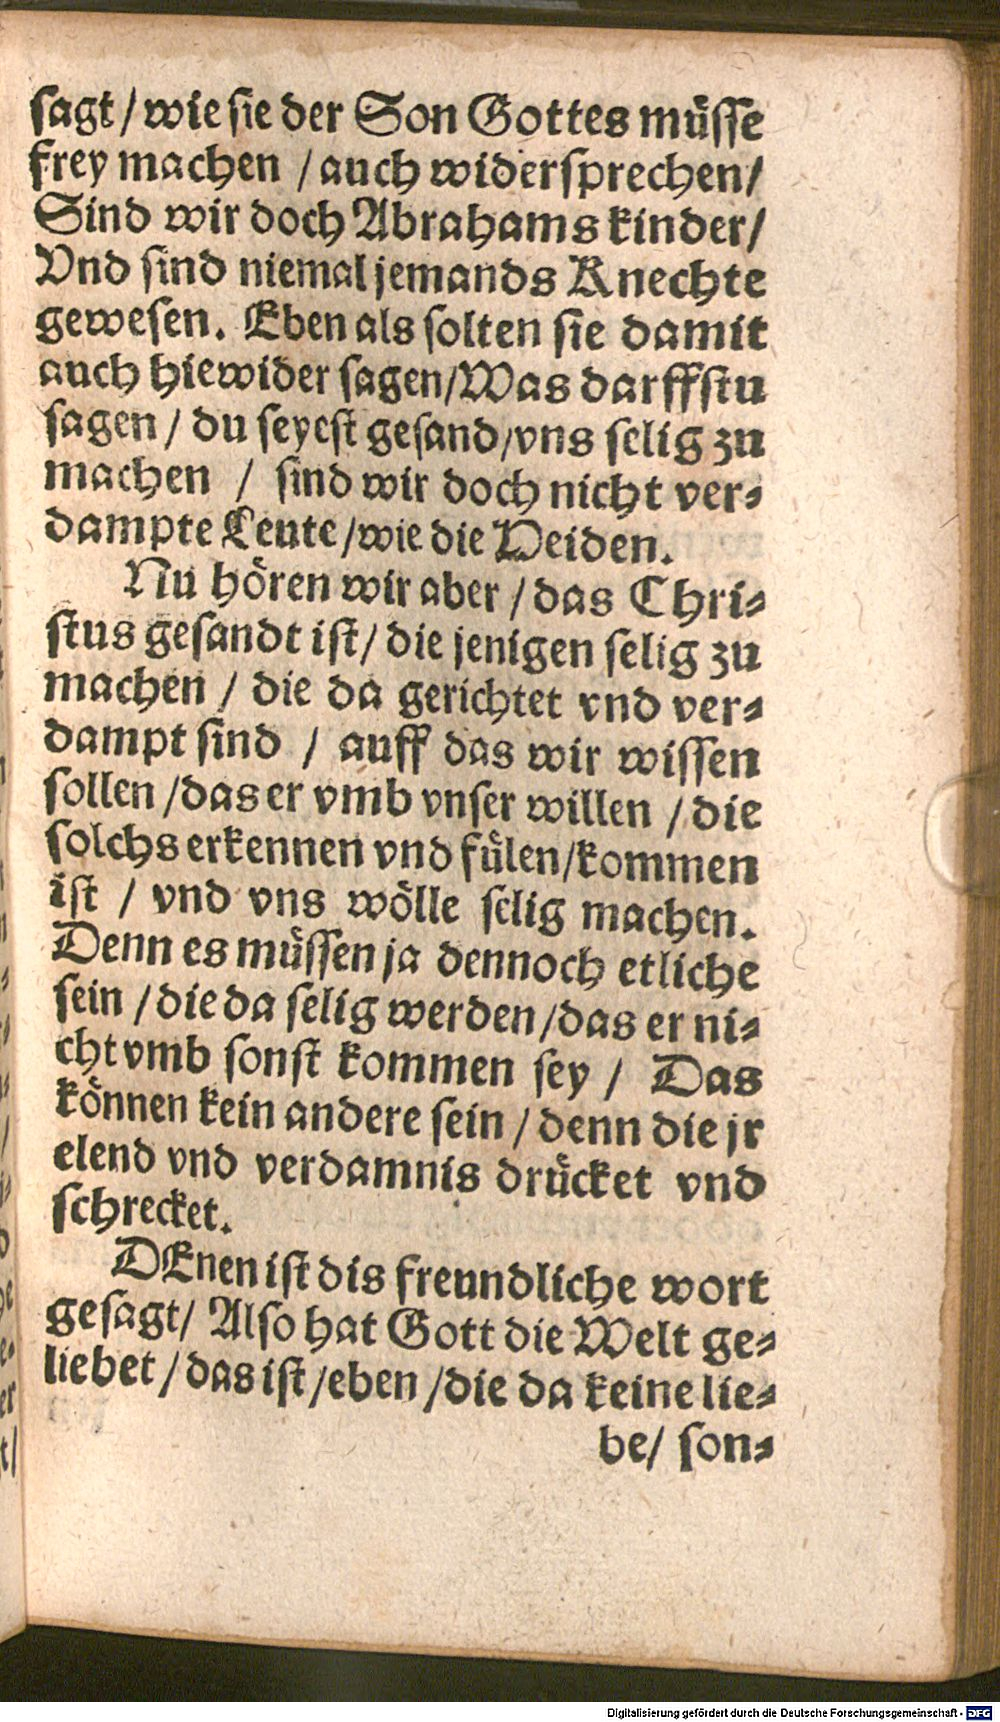 sagt / wie sie der Son Gottes müsse
frey machen / auch widersprechen /
Sind wir doch Abrahams kinder /
Vnd sind niemal jemands Knechte
gewesen. Eben als solten sie damit
auch hiewider sagen / Was darffstu
sagen / du seyest gesand / vns selig zu
machen / sind wir doch nicht ver-
dampte Leute / wie die Heiden.
Nu hören wir aber / das Chri-
stus gesandt ist / die jenigen selig zu
machen / die da gerichtet vnd ver-
dampt sind / auff das wir wissen
sollen / das er vmb vnser willen / die
solchs erkennen vnd fülen / kommen
ist / vnd vns wölle selig machen.
Denn es müssen ja dennoch etliche
sein / die da selig werden / das er ni-
cht vmb sonst kommen sey / Das
können kein andere sein / denn die jr
elend vnd verdamnis drücket vnd
schrecket.
DEnen ist dis freundliche wort
gesagt / Also hat Gott die Welt ge-
liebet / das ist / eben / die da keine lie-
be / son-
Digitalisierung gefördert durch die Deutsche Forschungsgemeinschaft - DFG